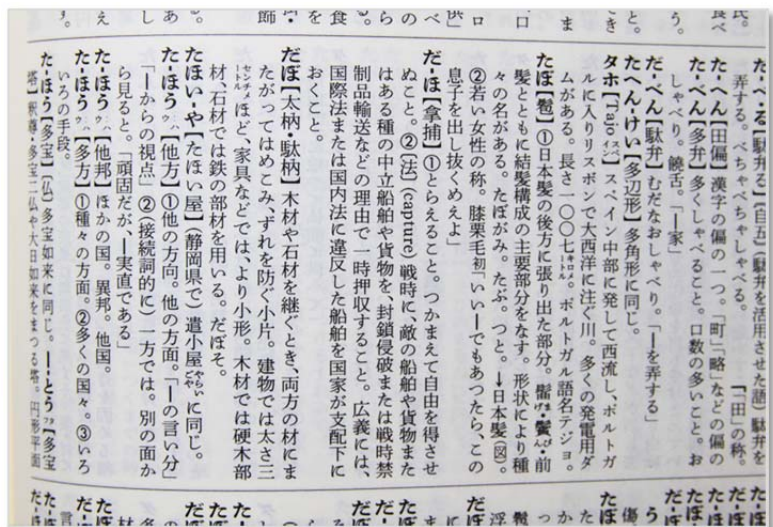 た-べ・る【駄弁る】〔自五〕(駄弁を活用させた語)駄弁を
弄する。べちゃべちゃしゃべる。「田」の称。
た-へん【田偏】漢字の偏の一つ。「町」「略」などの偏の
た-べん【多弁】多くしゃべること。口数の多いこと。お
しゃべり。饒舌。「―家」
だ-べん【駄弁】むだなおしゃべり。「―を弄する」
たへん-けい【多辺形】多角形に同じ。
タホ【Tajo スペ】スペイン中部に発して西流し、ポルトガ
ルに入りリスボンで大西洋に注ぐ川。多くの発電用ダ
ムがある。長さ一〇〇七キロメートル。ポルトガル語名テジョ。
たぼ【髱】①日本髪の後方に張り出た部分。髷まげ・鬢びん・前
髪とともに結髪構成の主要部分をなす。形状により種
々の名がある。たぼがみ。たぶ。つと。→日本髪(図)。
②若い女性の称。膝栗毛初「いい―でもあつたら、この
息子を出し抜くめえよ」
だ-ほ【拿捕】①とらえること。つかまえて自由を得させ
ぬこと。②〔法〕(capture)戦時に、敵の船舶や貨物また
はある種の中立船舶や貨物を、封鎖侵破または戦時禁
制品輸送などの理由で一時押収すること。広義には、
国際法または国内法に違反した船舶を国家が支配下に
おくこと。
だぼ【太枘・駄枘】木材や石材を継ぐとき、両方の材にま
たがってはめこみ、ずれを防ぐ小片。建物では太さ三
センチメートルほど、家具などでは、より小形。木材では硬木部
材、石材では鉄の部材を用いる。だぼそ。
たほい-や【たほい屋】(静岡県で)遣小屋やらいやに同じ。
た-ほうハウ【他方】①他の方向。他の方面。「―の言い分」
「―からの視点」②(接続詞的に)一方では。別の面か
ら見ると。「頑固だが、―実直である」
た-ほうハウ【他邦】ほかの国。異邦。他国。
た-ほうハウ【多方】①種々の方面。②多くの国々。③いろ
いろの手段。
た-ほう【多宝】〔仏〕多宝如来に同じ。―-とうタフ【多宝
塔】釈尊・多宝二仏や大日如来をまつる塔。円形平面